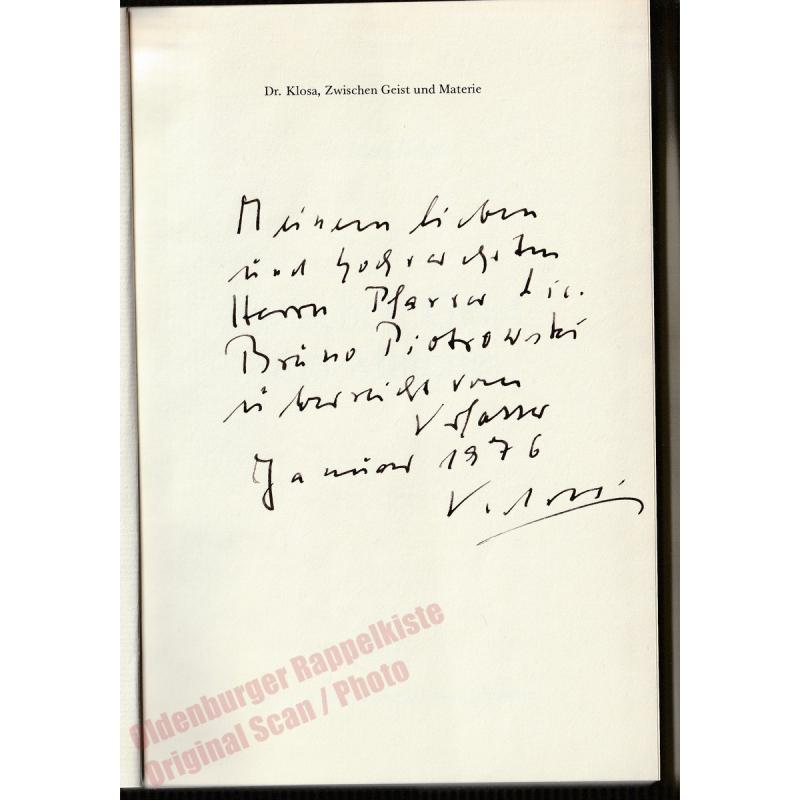 Dr. Klosa, Zwischen Geist und Materie
Meinem lieben
und hochverehrten
Herrn Pfarrer Lic.
Bruno Piotrowski
überreicht vom
Verfasser
Januar 1976
Oldenburger Rappelkiste
Original Scan / Photo